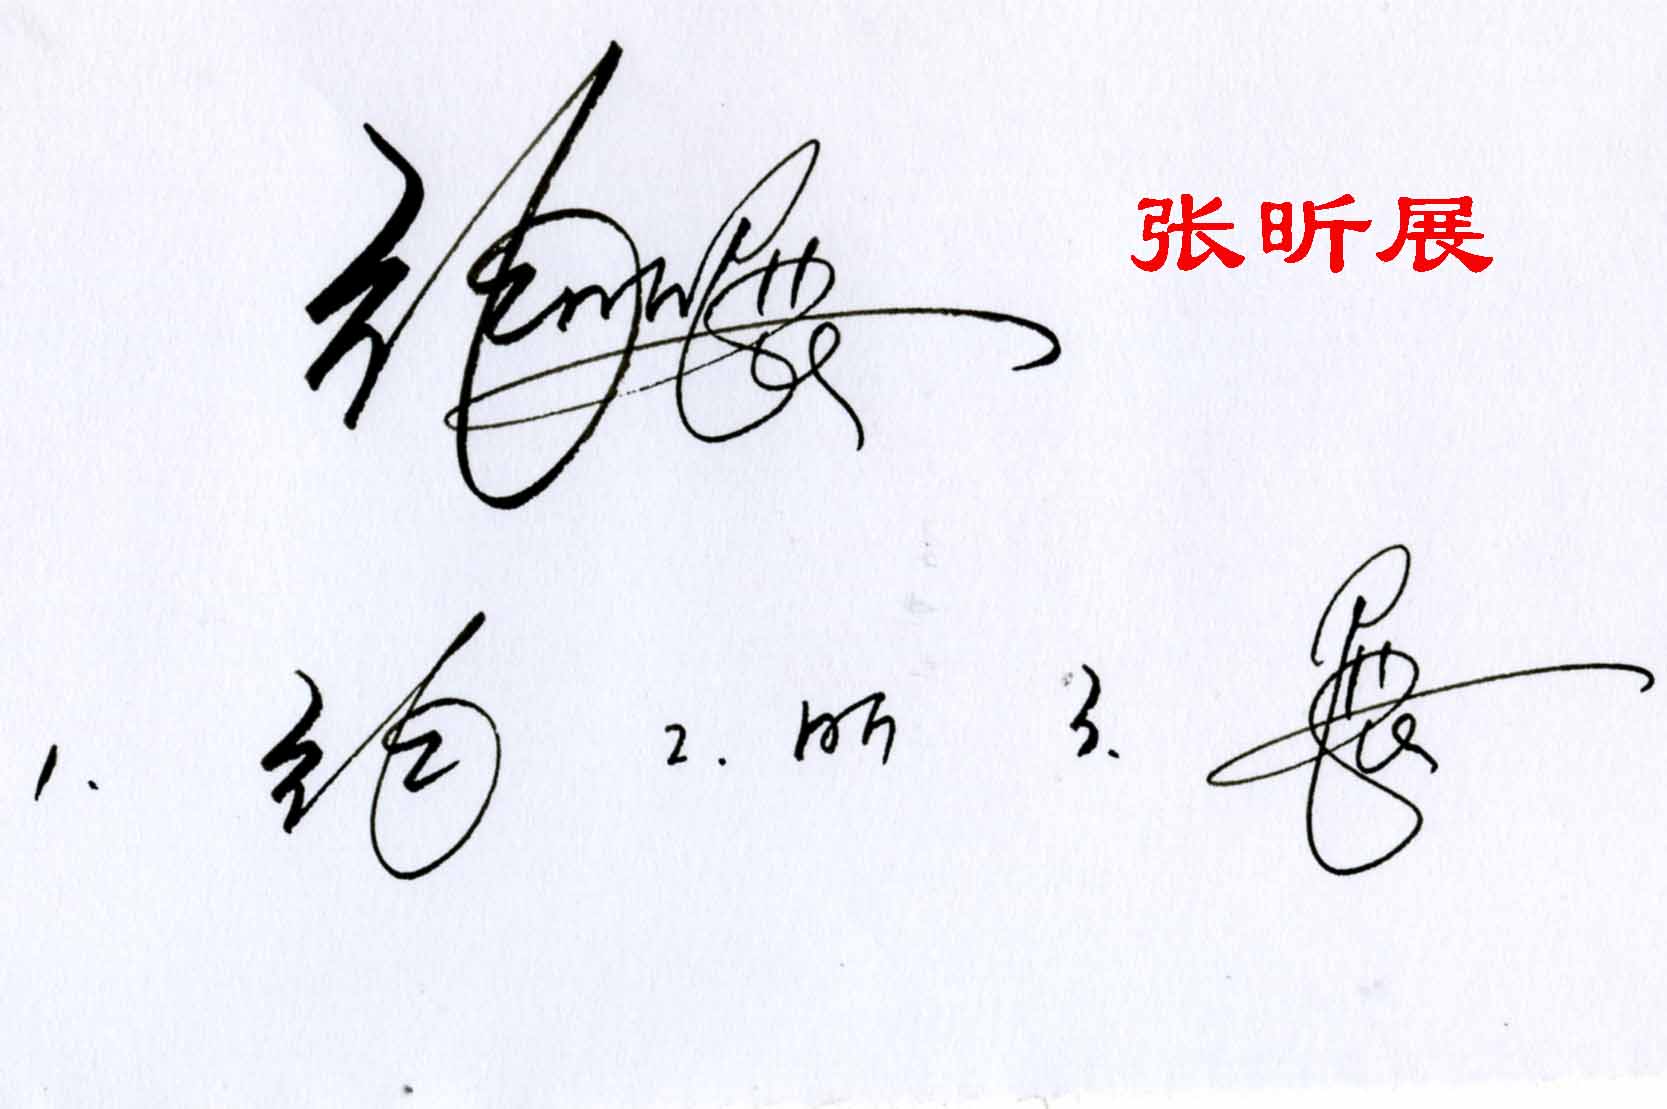 张昕展
张昕展
1. 张 2. 昕 3. 展